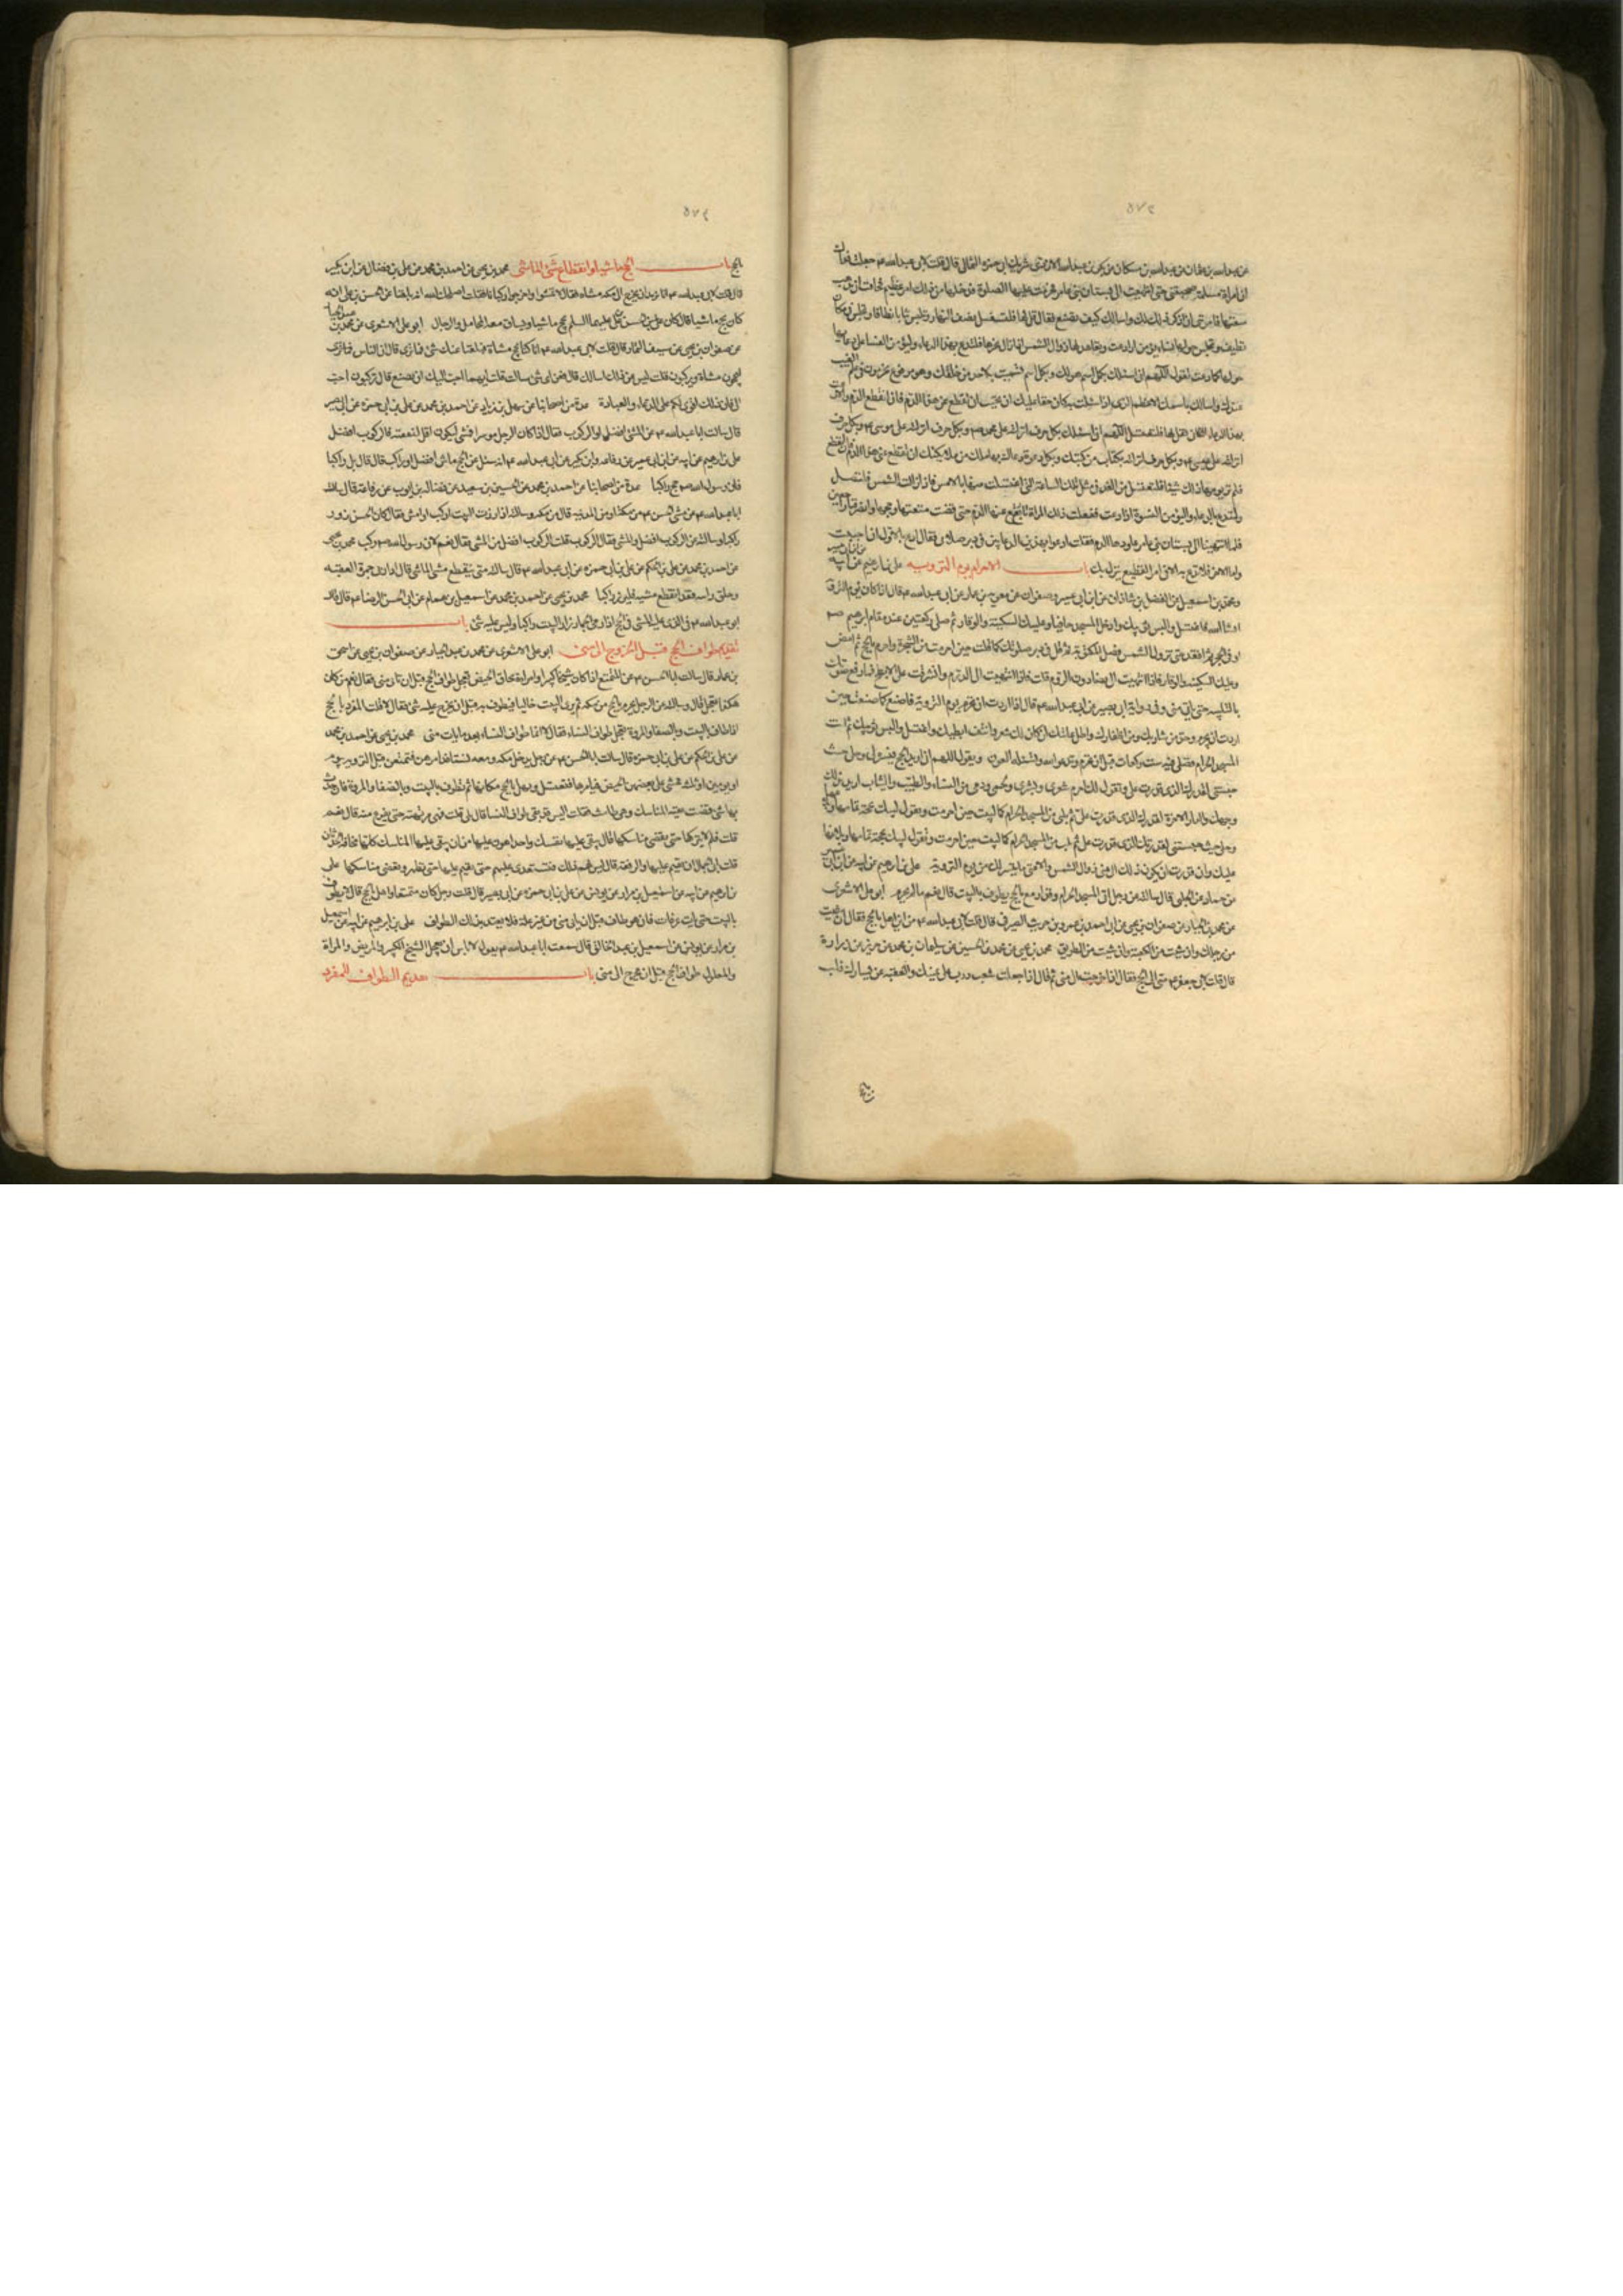 ٥٧٣
عن عبد الله بن عثمان عن عبد الله بن مسكان عن بكر بن عبد الله الازدى شريك ابى حمزة الثمالى قال قلت لابى عبد الله ع جعلت فداك
ان امراة مسلمة صحبتنى حتى انتهيت الى بستان بنى عامر فحرمت عليها الصلوة فدخلها من ذلك امر عظيم فخافت ان تذهب
متعتها فامرتنى ان اذكر ذلك لك واسالك كيف تصنع فقال قل لها فلتغتسل نصف النهار وتلبس ثيابا نظافا وتجلس فى مكان
نظيف وتجلس حولها نساء يؤمن اذا دعت وتعاهد لها زوال الشمس فاذا زالت فمرها فلتدع بهذا الدعاء وليؤمن النساء على دعائها
حولها كلما دعت تقول اللهم انى اسئلك بكل اسم هو لك وبكل اسم تسميت به لاحد من خلقك وهو مرفوع مخزون فى علم الغيب
عندك واسالك باسمك الاعظم الذى اذا سئلت به كان حقا عليك ان تجيب ان تقطع عنى هذا الدم فان انقطع الدم والا دعت
بهذا الدعاء الثانى فقل لها فلتقل اللهم انى اسئلك بكل حرف انزلته على محمد ص وبكل حرف انزلته على موسى ع وبكل حرف
انزلته على عيسى ع وبكل حرف انزلته فى كتاب من كتبك وبكل دعوة دعاك بها ملك من ملائكتك ان تقطع عنى هذا الدم فان انقطع
فلم تر يومها ذلك شيئا فلتغتسل من الغد فى مثل تلك الساعة التى اغتسلت فيها بالامس فاذا زالت الشمس فلتصل
ولتدع بالدعاء وليؤمن النسوة اذا دعت ففعلت ذلك المراة فارتفع عنها الدم حتى قضت متعتها وحجها وانصرفنا راجعين
فلما انتهينا الى بستان بنى عامر عاودها الدم فقلت ادعو بهذين الدعائين فى دبر صلاتى فقال ادع بالاول ان احببت
واما الاخر فلا تدع به الا فى الامر الفظيع ينزل بك باب الاحرام يوم التروية على بن ابرهيم عن ابيه
ومحمد بن اسمعيل عن الفضل بن شاذان عن ابن ابى عمير وصفوان عن معوية بن عمار عن ابى عبد الله ع قال اذا كان يوم التروية
ان شاء الله فاغتسل والبس ثوبيك وادخل المسجد حافيا وعليك السكينة والوقار ثم صل ركعتين عند مقام ابرهيم ص
او فى الحجر ثم اقعد حتى تزول الشمس فصل المكتوبة ثم قل فى دبر صلوتك كما قلت حين احرمت من الشجرة واحرم بالحج ثم امض
وعليك السكينة والوقار فاذا انتهيت الى الرقطاء دون الردم فلب فاذا انتهيت الى الردم واشرفت على الابطح فارفع صوتك
بالتلبية حتى تاتى منى وفى رواية ابى بصير عن ابى عبد الله ع قال اذا اردت ان تحرم يوم التروية فاصنع كما صنعت حين
اردت ان تحرم وخذ من شاربك ومن اظفارك واطل عانتك ان كان لك شعر وانتف ابطيك واغتسل والبس ثوبيك ثم ائت
المسجد الحرام فصل فيه ست ركعات قبل ان تحرم وتدعو الله وتسئله العون وتقول اللهم انى اريد الحج فيسره لى وحلنى حيث
حبستنى لقدرك الذى قدرت على وتقول احرم لك شعرى وبشرى ولحمى ودمى من النساء والطيب والثياب اريد بذلك
وجهك والدار الاخرة وحلنى حيث حبستنى لقدرك الذى قدرت على ثم تلب من المسجد الحرام كما لبيت حين احرمت وتقول لبيك بحجة تمامها وبلاغها
عليك وان قدرت ان يكون ذلك الى منى زوال الشمس والا متى ما تيسر لك من يوم التروية على بن ابرهيم عن ابيه عن ابن ابى عمير
عن حماد عن الحلبى قال سالته عن رجل اتى المسجد الحرام وقد ازمع بالحج يطوف بالبيت قال نعم ما لم يحرم ابو على الاشعرى
عن محمد بن عبد الجبار عن صفوان بن يحيى عن ابى احمد عمرو بن حريث الصيرفى قال قلت لابى عبد الله ع من اين اهل بالحج فقال ان شئت
من رحلك وان شئت من الكعبة وان شئت من الطريق محمد بن يحيى عن محمد بن الحسين عن سليمان بن محمد عن حريز عن زرارة
قال قلت لابى جعفر ع متى البى بالحج فقال اذا خرجت الى منى ثم قال اذا جعلت شعب دب على يمينك والعقبة عن يسارك فلب
٥٧٤
بالحج باب الحج ماشيا وانقطاع مشى الماشى محمد بن يحيى عن احمد بن محمد عن على بن فضال عن ابن بكير
قال قلت لابى عبد الله ع انا نريد ان نخرج الى مكة مشاة فقال لا تمشوا واخرجوا ركبانا فقلت اصلحك الله انه بلغنا عن الحسن بن على انه
كان يحج ماشيا قال كان على بن الحسن بن على عليهما السلم يحج ماشيا وتساق معه المحامل والرحال ابو على الاشعرى عن محمد بن عبد الجبار
عن صفوان بن يحيى عن سيف التمار قال قلت لابى عبد الله ع انا كنا نحج مشاة فبلغنا عنك شئ فما ترى قال ان الناس
ليحجون مشاة ويركبون قلت ليس عن ذلك اسالك قال فعن اى شئ سالت قلت ايهما احب اليك ان نصنع قال تركبون احب
الى فان ذلك اقوى لكم على الدعاء والعبادة عدة من اصحابنا عن سهل بن زياد عن احمد بن محمد عن على بن ابى حمزة عن ابى بصير
قال سالت ابا عبد الله ع عن المشى افضل او الركوب فقال اذا كان الرجل موسرا فمشى ليكون اقل لنفقته فالركوب افضل
على بن ابرهيم عن ابيه عن ابن ابى عمير عن رفاعة وابن بكير عن ابى عبد الله ع انه سئل عن الحج ماشيا افضل او راكبا قال بل راكبا
فان رسول الله ص حج راكبا عدة من اصحابنا عن احمد بن محمد عن الحسين بن سعيد عن فضالة بن ايوب عن رفاعة قال سالت
ابا عبد الله ع عن مشى الحسن ع من مكة او من المدينة قال من مكة وسالته اذا زرت البيت اركب او امشى فقال كان الحسن يزور
راكبا وسالته عن الركوب افضل او المشى فقال الركوب قلت الركوب افضل من المشى فقال نعم لان رسول الله ص ركب محمد بن يحيى
عن احمد بن محمد عن على بن الحكم عن على بن ابى حمزة عن ابى عبد الله ع قال سالته متى ينقطع مشى الماشى قال اذا رمى جمرة العقبة
وحلق راسه فقد انقطع مشيه فليزر راكبا محمد بن يحيى عن احمد بن محمد عن اسمعيل بن همام عن ابى الحسن الرضا ع قال قال
ابو عبد الله ع فى الذى عليه المشى فى الحج اذا رمى الجمار زار البيت راكبا وليس عليه شئ باب
تقديم طواف الحج قبل الخروج الى منى ابو على الاشعرى عن محمد بن عبد الجبار عن صفوان بن يحيى عن اسحق
بن عمار قال سالت ابا الحسن ع عن المتمتع اذا كان شيخا كبيرا او امراة تخاف الحيض تعجل طواف الحج قبل ان تاتى منى فقال نعم من كان
هكذا تعجل قال وسالته عن الرجل يحرم بالحج من مكة ثم يرى البيت خاليا فيطوف به قبل ان يخرج عليه شئ فقال لا قلت المفرد بالحج
اذا طاف بالبيت وبالصفا والمروة تعجل طواف النساء فقال لا انما طواف النساء بعد ما يات منى محمد بن يحيى عن احمد بن محمد
عن على بن الحكم عن على بن ابى حمزة قال سالت ابا الحسن ع عن رجل يدخل مكة ومعه نساء قد امرهن فتمتعن قبل التروية بيوم
او يومين او ثلثة فخشى على بعضهن الحيض فيامرها فتغتسل وتهل بالحج مكانها ثم تطوف بالبيت وبالصفا والمروة فان حدث
بها شئ قضت بقية المناسك وهى طامث فقلت اليس قد بقى طواف النساء قال بلى قلت فهى مرتهنة حتى تفرغ منه قال نعم
قلت فلم لا يتركها حتى تقضى مناسكها قال يبقى عليها منسك واحد اهون عليها من ان يبقى عليها المناسك كلها مخافة الحدثان
قلت ابى الجمال ان يقيم عليها والرفقة قال ليس لهم ذلك تستعدى عليهم حتى يقيم عليها حتى تطهر وتقضى مناسكها على
بن ابرهيم عن ابيه عن اسمعيل بن مرار عن يونس عن على بن ابى حمزة عن ابى بصير قال قلت رجل كان متمتعا واهل بالحج قال لا يطوف
بالبيت حتى ياتى عرفات فان هو طاف قبل ان ياتى منى من غير علة فلا يعتد بذلك الطواف على بن ابرهيم عن ابيه عن اسمعيل
بن مرار عن يونس عن اسمعيل بن عبد الخالق قال سمعت ابا عبد الله ع يقول لا باس ان يعجل الشيخ الكبير والمريض والمراة
والمعلول طواف الحج قبل ان يخرج الى منى باب تقديم الطواف للمفرد